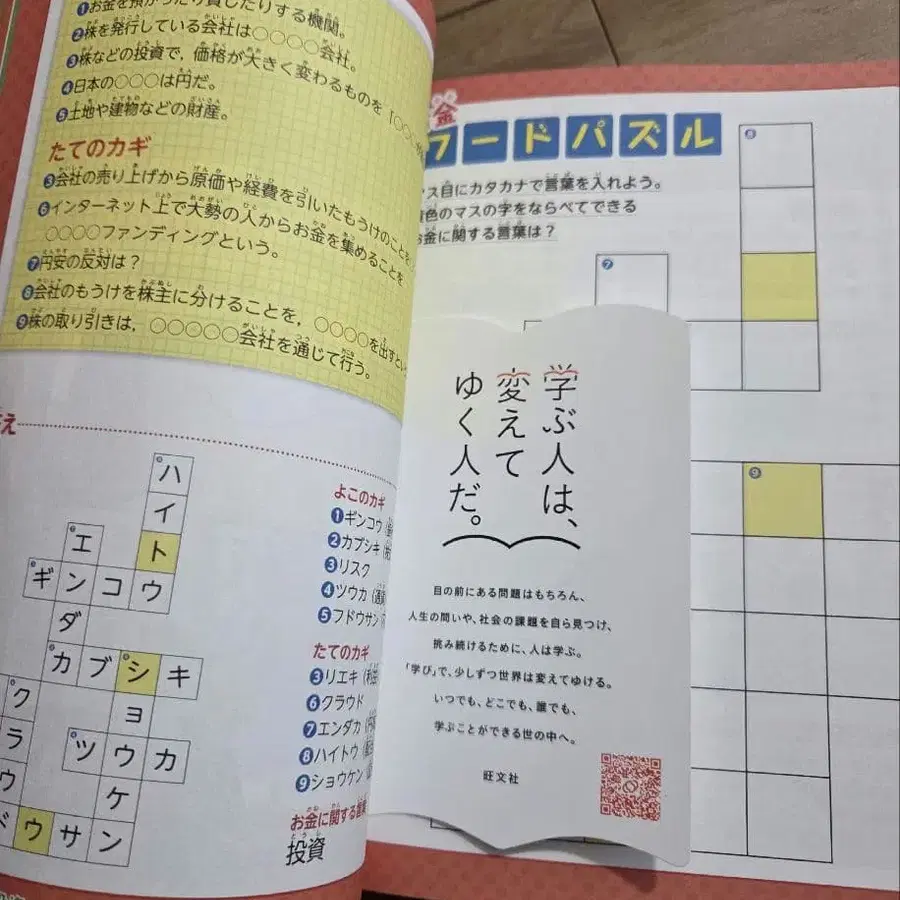 ①お金を預かったり貸したりする機関。
②株を発行している会社は○○○○会社。
③株などの投資で、価格が大きく変わるものを「○○○
④日本の○○○は円だ。
⑤土地や建物などの財産。
たてのカギ
③会社の売り上げから原価や経費を引いたもうけのことを
⑥インターネット上で大勢の人からお金を集めることを
○○○○ファンディングという。
⑦円安の反対は？
⑧会社のもうけを株主に分けることを、○○○○を出すとい
⑨株の取り引きは、○○○○○会社を通じて行う。
え
ハ
イ
エ ト
ギンコウ
ダ
カブシキ
ク ョ
ラ ツウカ
ウ ケ
ドウサン
よこのカギ
①ギンコウ
②カブシキ
③リスク
④ツウカ
⑤フドウサン
たてのカギ
③リエキ
⑥クラウド
⑦エンダカ
⑧ハイトウ
⑨ショウケン
お金に関する言葉
投資
金
ワードパズル
マス目にカタカナで言葉を入れよう。
黄色のマスの字をならべてできる
お金に関する言葉は？
⑧
⑦
⑨
学ぶ人は、
変えて
ゆく人だ。
目の前にある問題はもちろん、
人生の問いや、社会の課題を自ら見つけ、
挑み続けるために、人は学ぶ。
「学び」で、少しずつ世界は変えてゆける。
いつでも、どこでも、誰でも、
学ぶことができる世の中へ。
旺文社